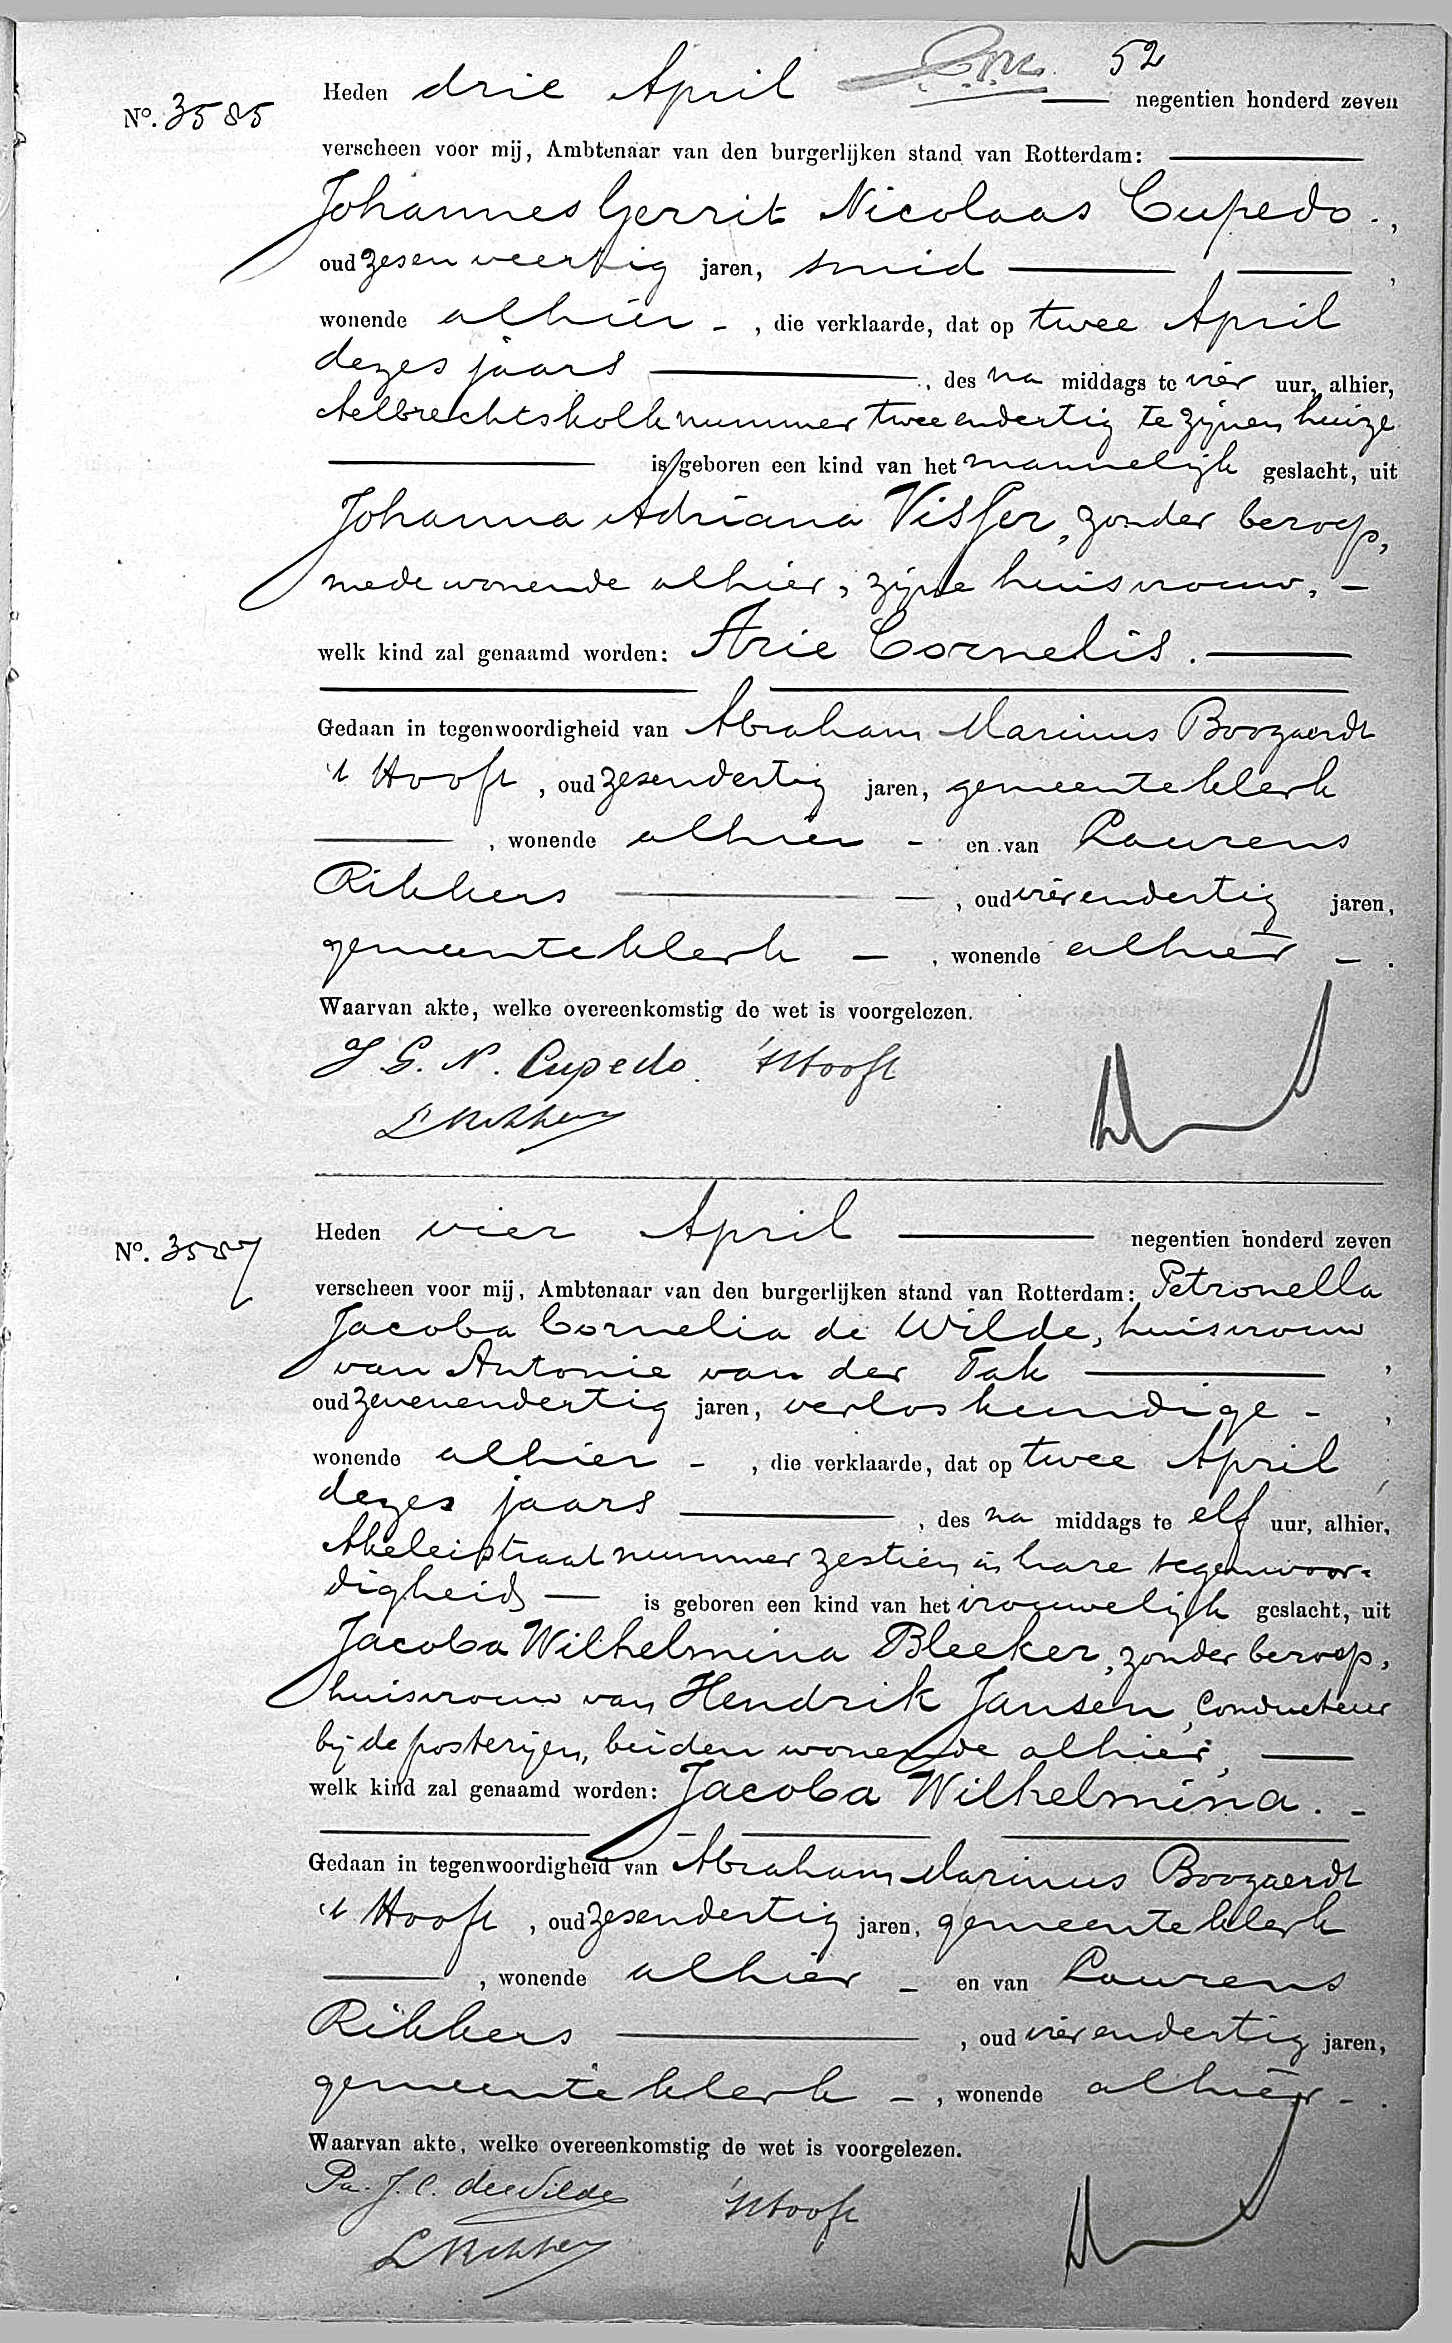 52
Heden drie April — negentien honderd zeven
No. 3585
verscheen voor mij, Ambtenaar van den burgerlijken stand van Rotterdam: —
Johannes Gerrit Nicolaas Cupedo.,
oud zesenveertig jaren, smid — — ,
wonende alhier - , die verklaarde, dat op twee April
dezes jaars — , des na middags te vier uur, alhier,
Aelbrechtskolk nummer twee endertig te zijnen huize
— is geboren een kind van het mannelijk geslacht, uit
Johanna Adriana Visser, zonder beroep,
mede wonende alhier, zijne huisvrouw, -
welk kind zal genaamd worden: Arie Cornelis. —
Gedaan in tegenwoordigheid van Abraham Marinus Boogaerdt
't Hooft , oud zesendertig jaren, gemeenteklerk
— , wonende alhier - en van Laurens
Rikkers — , oud vierendertig jaren,
gemeenteklerk - , wonende alhier - .
Waarvan akte, welke overeenkomstig de wet is voorgelezen.
J. G. N. Cupedo. 't Hooft
L Rikkers
Heden vier April — negentien honderd zeven
No. 3587
verscheen voor mij, Ambtenaar van den burgerlijken stand van Rotterdam: Petronella
Jacoba Cornelia de Wilde, huisvrouw
van Antonie van der Tak — ,
oud zevenendertig jaren, verloskundige - ,
wonende alhier - , die verklaarde, dat op twee April
dezes jaars — , des na middags te elf uur, alhier,
straat nummer zestien in hare tegenwoor-
digheid — is geboren een kind van het vrouwelijk geslacht, uit
Jacoba Wilhelmina Bleeker, zonder beroep,
huisvrouw van Hendrik Jansen, Conducteur
bij de posterijen, beiden wonende alhier, —
welk kind zal genaamd worden: Jacoba Wilhelmina. -
Gedaan in tegenwoordigheid van Abraham Marinus Boogaerdt
't Hooft , oud zesendertig jaren, gemeenteklerk
— , wonende alhier - en van Laurens
Rikkers — , oud vierendertig jaren,
gemeenteklerk - , wonende alhier - .
Waarvan akte, welke overeenkomstig de wet is voorgelezen.
Pa. J. C. de Wilde 't Hooft
L Rikkers